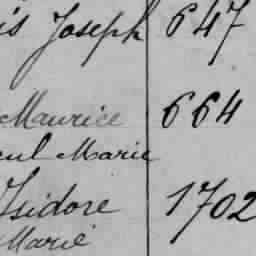 is Joseph 647
Maurice 664
eul Marie
Isidore 1702
Marie